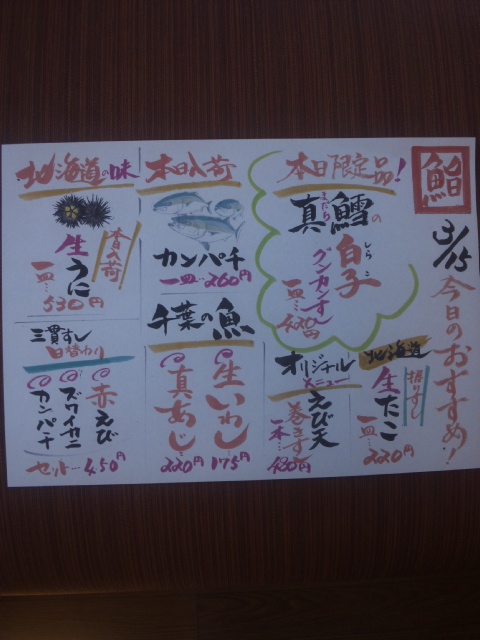 鮨
3/15
今日のおすすめ!
本日限定品!
真鱈の
まだら
白子
しらこ
グンカンすし
一皿…420円
北海道
握りすし
生たこ
一皿…220円
オリジナル
メニュー
えび天
巻きすし
一本…430円
本日入荷
カンパチ
一皿…260円
千葉の魚
生いわし…175円
真あじ…220円
北海道の味
本日入荷
生うに
一皿…530円
三貫すし
日替わり
赤えび
ズワイカニ
カンパチ
セット…450円